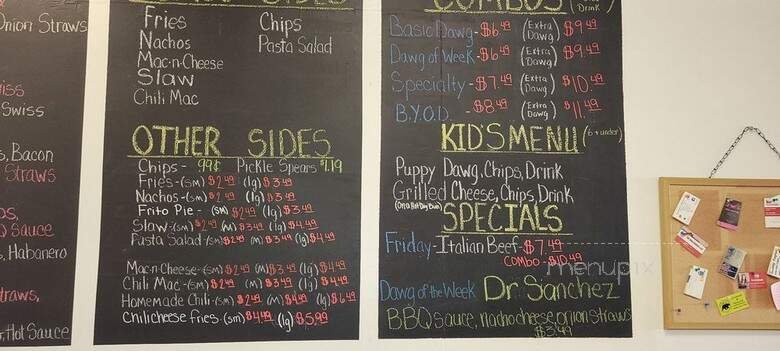 Onion Straws
iss
Swiss
s, Bacon
Straws
os,
Q sauce
s, Habanero
traws,
r, Hot Sauce
SIDES
Fries
Chips
Nachos
Pasta Salad
Mac-n-Cheese
Slaw
Chili Mac
OTHER SIDES
Chips - 99¢ Pickle Spears $1.19
Fries-(sm) $2.49 (lg) $3.49
Nachos-(sm) $2.49 (lg) $3.49
Frito Pie - (sm) $2.49 (lg) $3.49
Slaw-(sm) $2.49 (m) $3.49 (lg) $4.49
Pasta Salad-(sm) $2.49 (m) $3.49 (lg) $4.49
Mac-n-Cheese-(sm) $2.49 (m) $3.49 (lg) $4.49
Chili Mac - (sm) $2.49 (m) $3.49 (lg) $4.49
Homemade Chili-(sm) $2.49 (m) $4.49 (lg) $6.49
Chilicheese fries-(sm) $4.49 (lg) $5.99
COMBOS
Drink
Basic Dawg-$6.49 (Extra Dawg) $9.49
Dawg of Week-$6.49 (Extra Dawg) $9.49
Specialty-$7.49 (Extra Dawg) $10.49
B.Y.O.D. - $8.49 (Extra Dawg) $11.49
KID'S MENU (6 + under)
Puppy Dawg, Chips, Drink
Grilled Cheese, Chips, Drink
(On a Hot Dog Bun)
SPECIALS
Friday-Italian Beef-$7.49
COMBO-$10.49
Dawg of the Week Dr. Sanchez
BBQ sauce, nacho cheese, onion straws
$3.49
menupix